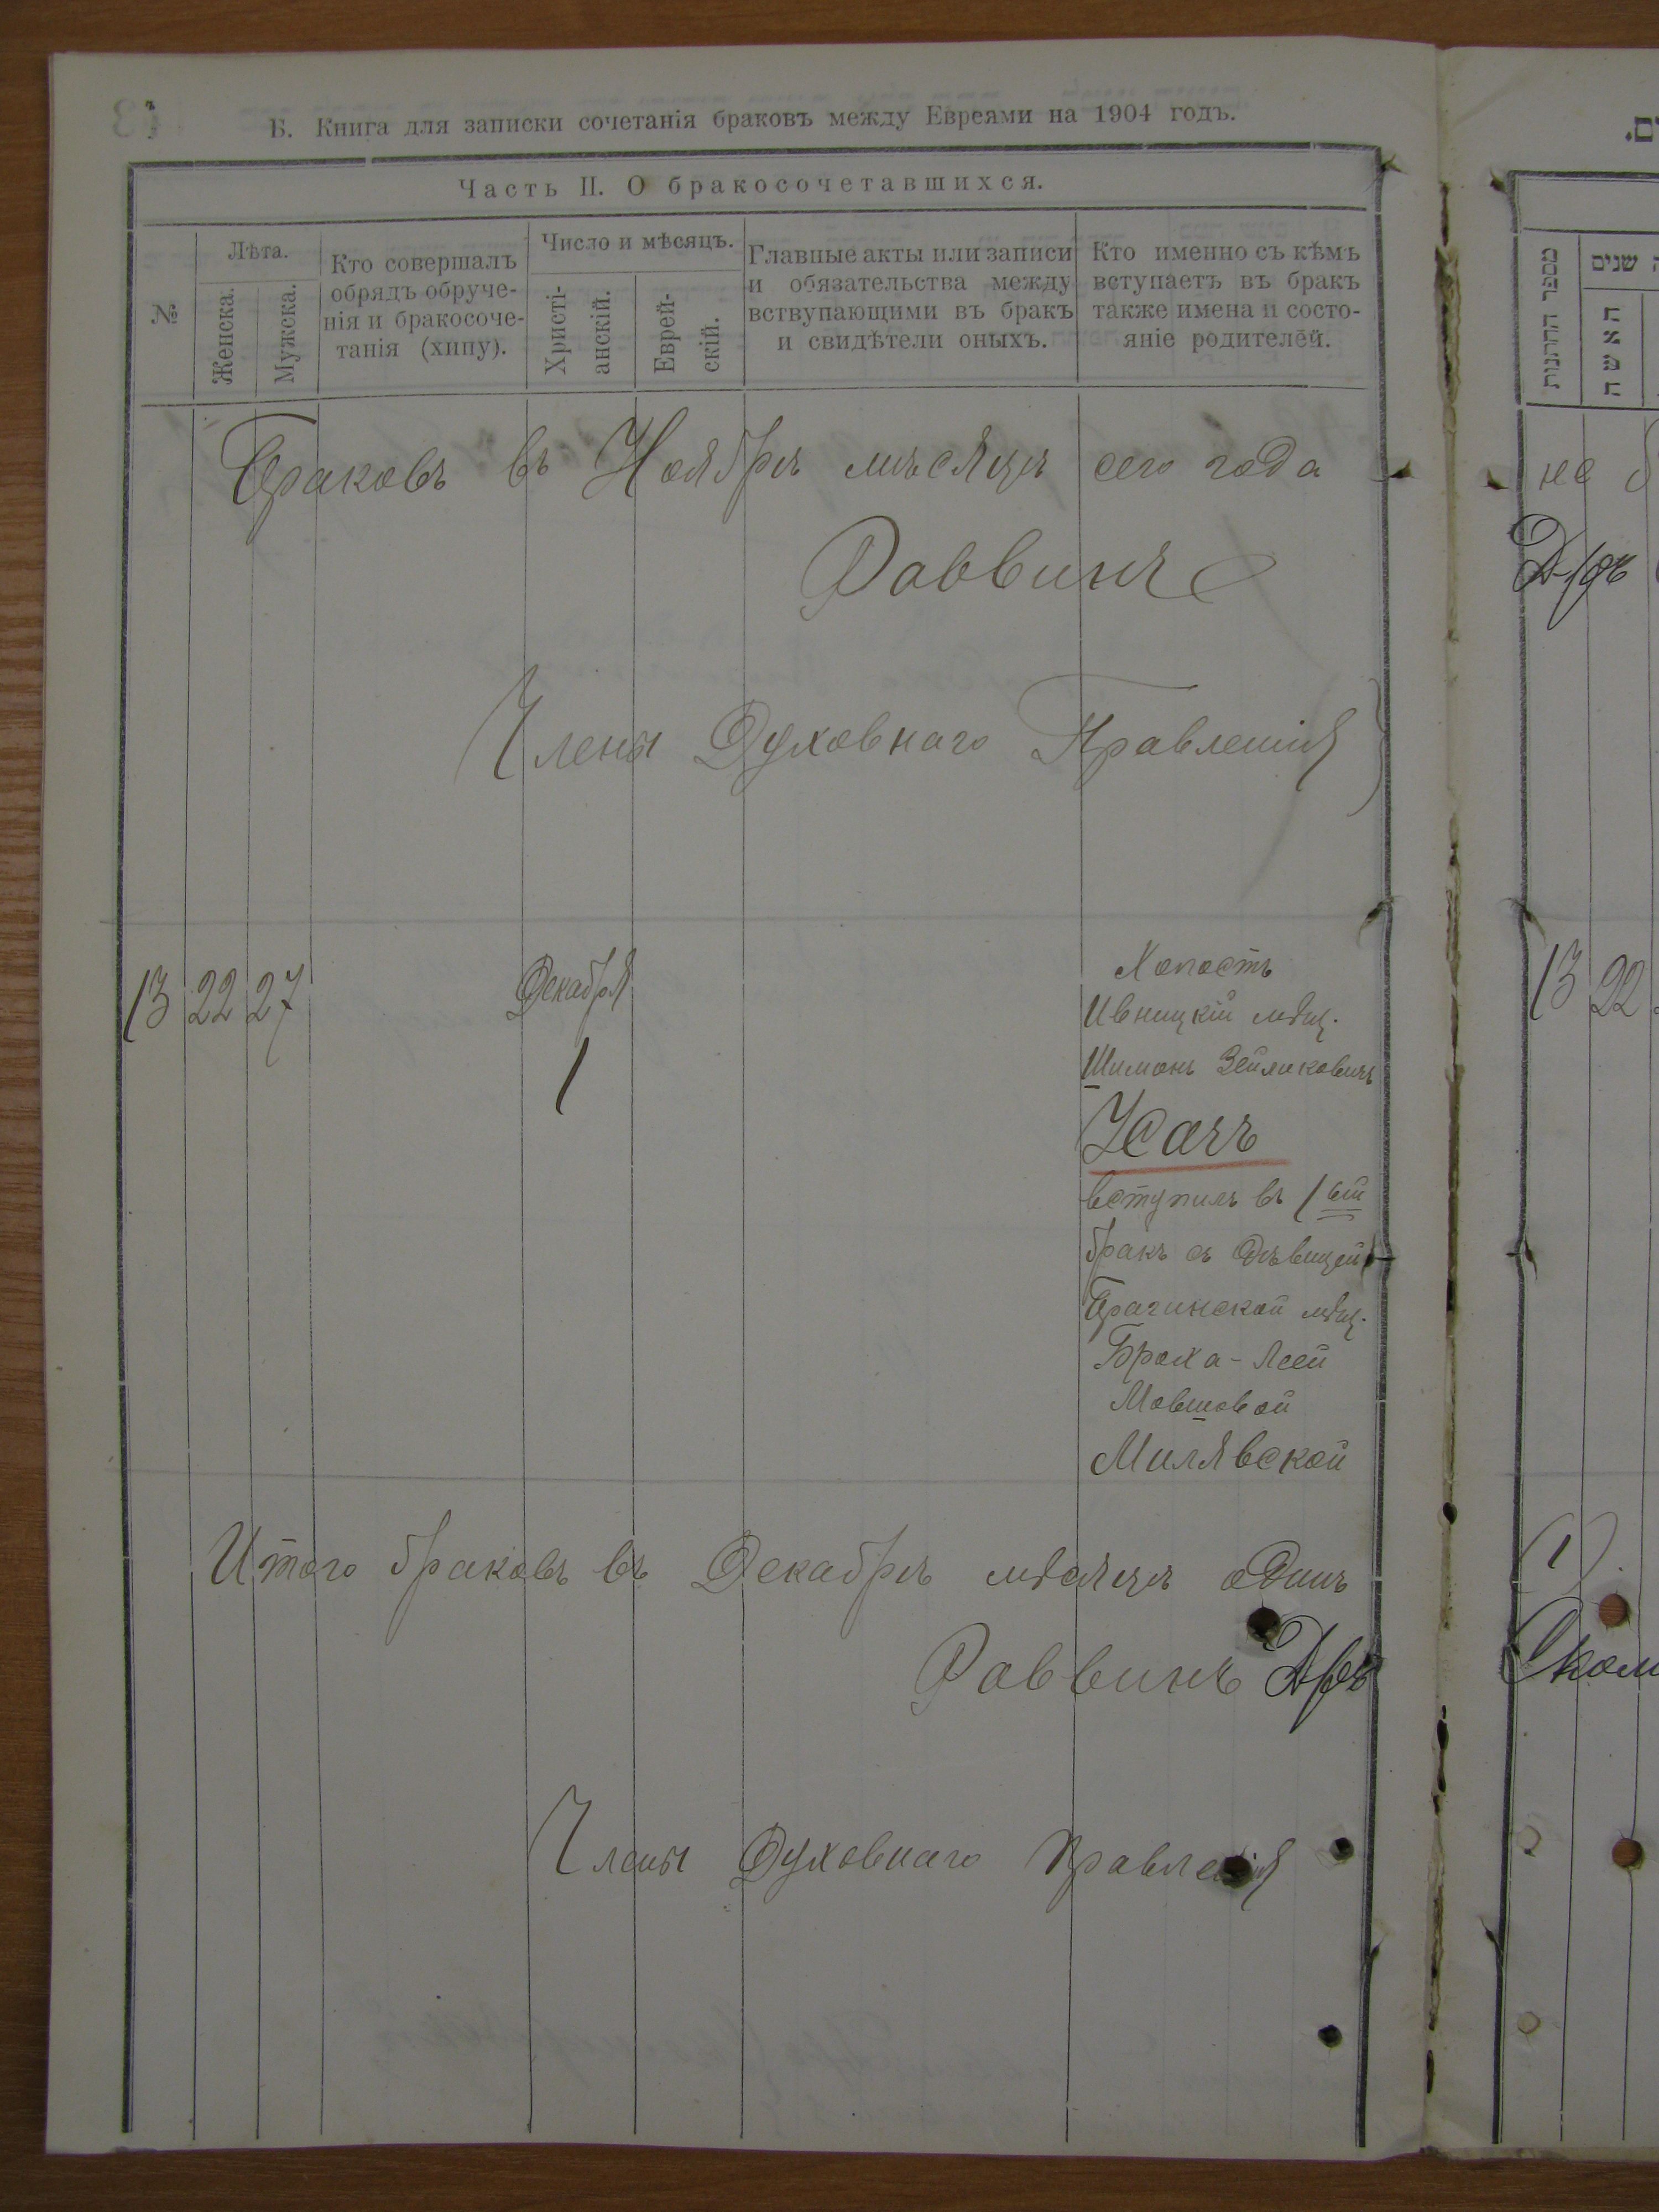 Б. Книга для записки сочетанія браковъ между Евреями на 1904 годъ.
Часть II. О бракосочетавшихся.
№
Лѣта.
Женска.
Мужска.
Кто совершалъ
обрядъ обруче-
нія и бракосоче-
танія (хипу).
Число и мѣсяцъ.
Христі-
анскій.
Еврей-
скій.
Главные акты или записи
и обязательства между
вствупающими въ бракъ
и свидѣтели оныхъ.
Кто именно съ кѣмъ
вступаетъ въ бракъ
также имена и состо-
яніе родителей.
Браковъ въ Ноябрѣ мѣсяцѣ сего года
Раввинъ
Члены Духовнаго Правленія
13 22 27
Декабря
1
Холостъ
Ивницкій мѣщ.
Шимонъ Зейликовичъ
Усачъ
вступилъ въ 1ый
бракъ съ дѣвицей
Брагинской мѣщ.
Браха-Леей
Мовшовой
Милявской
Итого браковъ въ Декабрѣ мѣсяцѣ одинъ
Раввинъ Д-ръ
Члены Духовнаго Правленія
מספר החתונות
שנים
האשה
не
Д-ръ
13 22
(1)